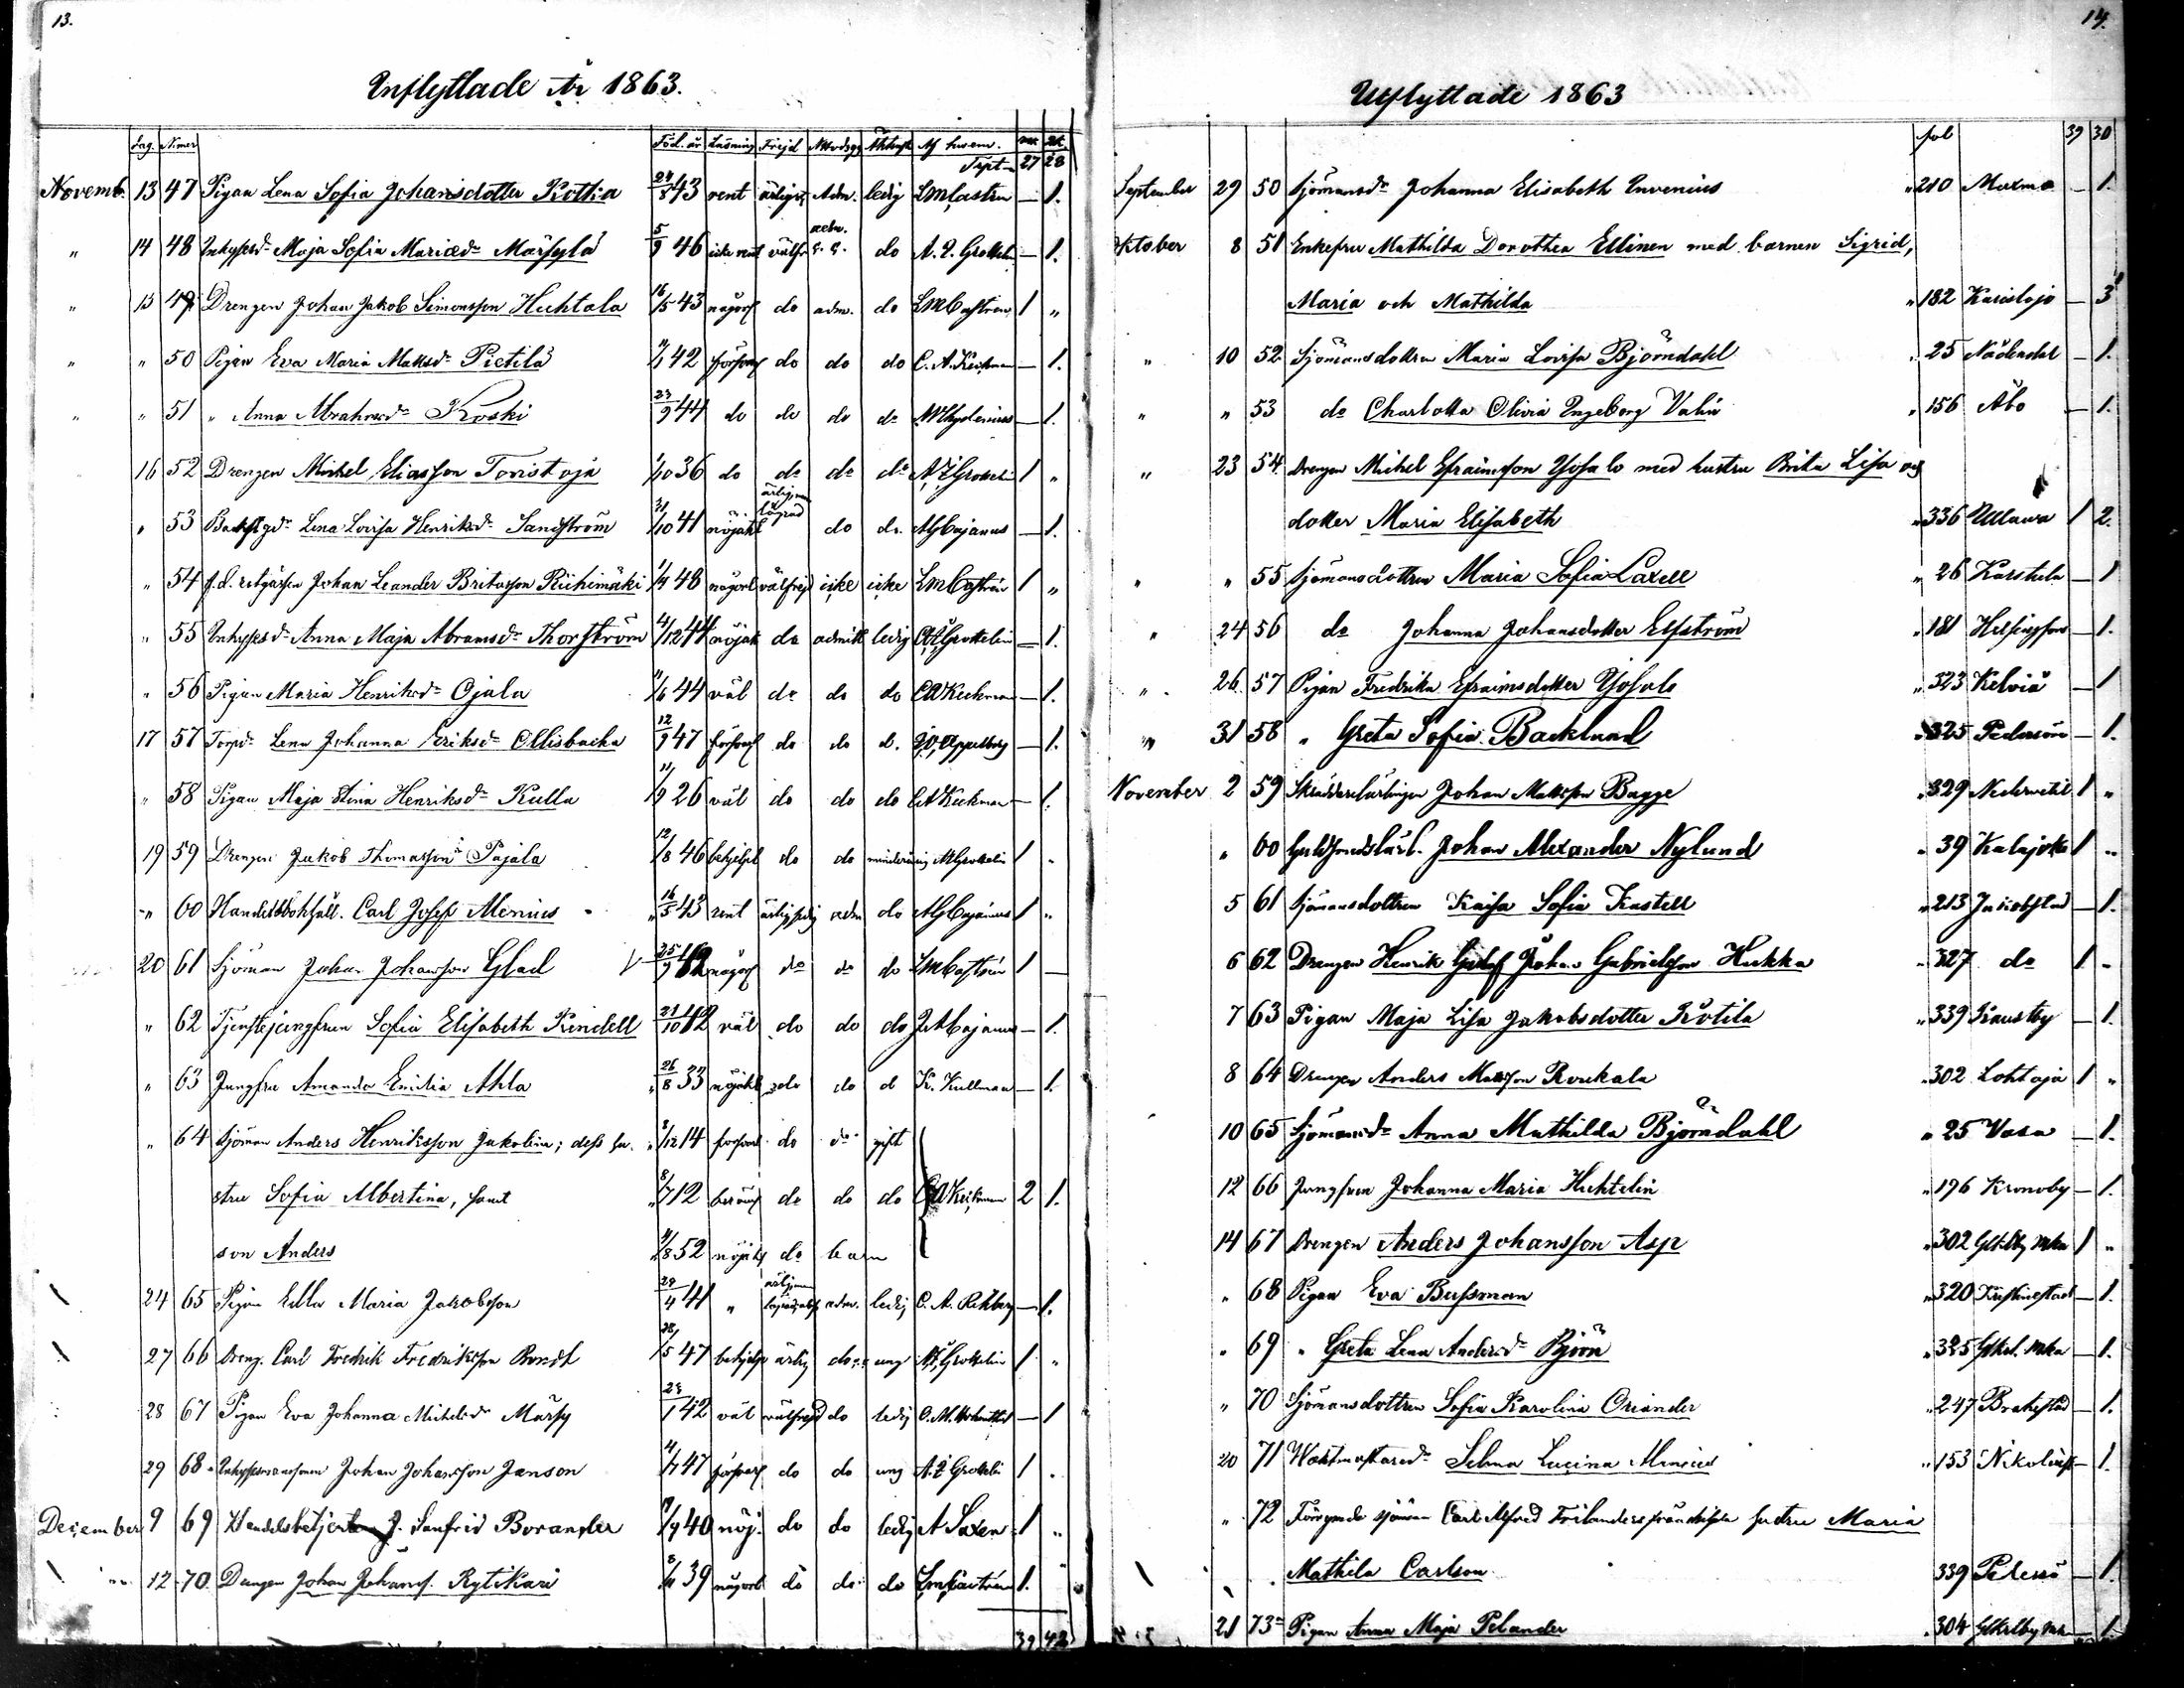 13.
Inflyttade År 1863.
Dag. N:mer Föd. år Läsning Frejd Af hvem
Tspt 27 28
Novemb. 13 47 Pigan Lena Sofia Johansdotter Kottia 24/8 43 rent adm. ledig LMCastren — 1.
" 14 48 Inhyses d:r Maja Sofia Mariæd:r Märsylä 5/9 46 icke rent välfr do — 1.
" 13 49 Drengen Johan Jakob Simonsson Huhtala 16/5 43 någorl do adm. do LMCastren 1 "
" " 50 Pigan Eva Maria Matsd:r Pietilä 42 försvarl do do do C. A. Keckman — 1.
" " 51 " Anna Abrahamsd:r Koski 23/9 44 do do do do — 1.
16 52 Drengen Michel Eliasson Tonistoja 1/10 36 do do do do 1 "
" 53 Lena Lovisa Henriksd:r Sandström 31/10 41 nöjakt do do AGCajanus — 1.
" 54 Johan Leander Britasson Riihimäki 48 någorl välfrejd icke icke LMCastrén 1 "
" 55 Inhyses d:r Anna Maja Abramsd:r Thorström 4/12 44 nöjakt do admitt ledig — 1.
" 56 Pigan Maria Henriksd:r Ojala 44 väl do do do CAKeckman — 1.
17 57 Torpd:r Lena Johanna Eriksd:r Ollisbacka 12/9 47 försvarl do do d. — 1.
" 58 Pigan Maja Stina Henriksd:r Kulla 11/9 26 väl do do do CAKeckman — 1.
19 59 Drengen Jakob Thomasson Pajala 12/8 46 behjelpl do do 1 "
" 60 Carl Josef Menius 16/5 43 rent do AGCajanus 1 "
20 61 Sjöman Johan Johansson Glad 25/9 någorl do do do LMCastrén 1 —
" 62 Tjenstejungfrun Sofia Elisabeth Rindell 21/10 42 väl do do do — 1.
" 63 Jungfru Amanda Emilia Ahla 26/8 33 nöjakt do do d K. Kullman — 1.
" 64 Sjöman Anders Henriksson Jakolin; dess hu- 8/12 14 försvarl do do gift
stru Sofia Albertina, samt 8/7 12 do do do CAKeckman 2 1.
son Anders 52 nöjakt do barn
24 65 Pigan Maria Jakobsson 28/4 41 " adm. ledig — 1.
27 66 Dreng. Carl Fredrik Fredriksson 28/5 47 behjelpl ärlig do ung 1 "
28 67 Pigan Eva Johanna Michelsd:r Märsy 28/1 42 väl välfrejd do ledig — 1
29 68 Johan Johansson Janson 47 försvarl do do ung 1 "
December 9 69 J. Sanfrid Borander 40 nöj. do do ledig A Saxen 1 "
" 12 70 Drengen Johan Johans. Rytikari 39 någorl do do do LMCastrén 1.
39 42
14.
Utflyttade 1863
fol 39 30
September 29 50 Sjömansd:r Johanna Elisabeth Invenius " 210 — 1.
Oktober 8 51 Enkefru Mathilda Dorothea Ellinen med barnen Sigrid,
Maria och Mathilda " 182 Karislojo — 3
" 10 52 Sjömansdottren Maria Lovisa Björndahl " 25 Nådendal — 1.
" " 53 do Charlotta Olivia Ingeborg Valin " 156 Åbo — 1.
" 23 54. Drengen Michel Efraimsson Yosalo med hustru Brita Lisa och
dotter Maria Elisabeth " 336 Ullawa 1 2.
" " 55 Sjömansdottren Maria Sofia Laxell " 26 Karstula — 1
" 24 56 do Johanna Johansdotter Elfström " 181 Helsingfors — 1.
" 26 57 Pigan Fredrika Efraimsdotter Yosalo " 323 Kelviå — 1
" 31 58 " Greta Sofia Backlund " 325 Pedersöre — 1.
November 2 59 Skräddarelärlingen Johan Mattsson Bagge " 329 Nederwetil 1 "
" 60 Guldsmedslärl. Johan Alexander Nylund " 39 Kalajoki 1 "
5 61 Sjömansdottren Kaisa Sofia Kastell " 213 Jakobstad — 1.
6 62 Drengen Henrik Gustaf Johan Gabrielsson Hukka " 327 do 1 "
7 63 Pigan Maja Lisa Jakobsdotter Kotila " 339 Kaustby — 1.
8 64 Drengen Anders Mattsson Roukala " 302 Lohtaja 1 "
10 65 Sjömansd:r Anna Mathilda Björndahl " 25 Wasa — 1.
12 66 Jungfrun Johanna Maria Huhtelin " 196 Kronoby — 1.
14 67 Drengen Anders Johansson Asp " 302 1 "
" 68 Pigan Eva Bussman " 320 Kristinestad — 1.
" 69 " Greta Lena Andersd:r Björn " 325 — 1.
" 70 Sjömansdottren Sofia Karolina Oriander " 247 Brahestad — 1.
20 71 Waktmästared:r Selma Lucina Menius " 153 — 1.
" 72 Förrymde sjöman Carl Alfred Frilanders frånskilda hustru Maria
Mathilda Carlson 339 — 1.
21 73 Pigan Anna Maja Pelander " 304 — 1.